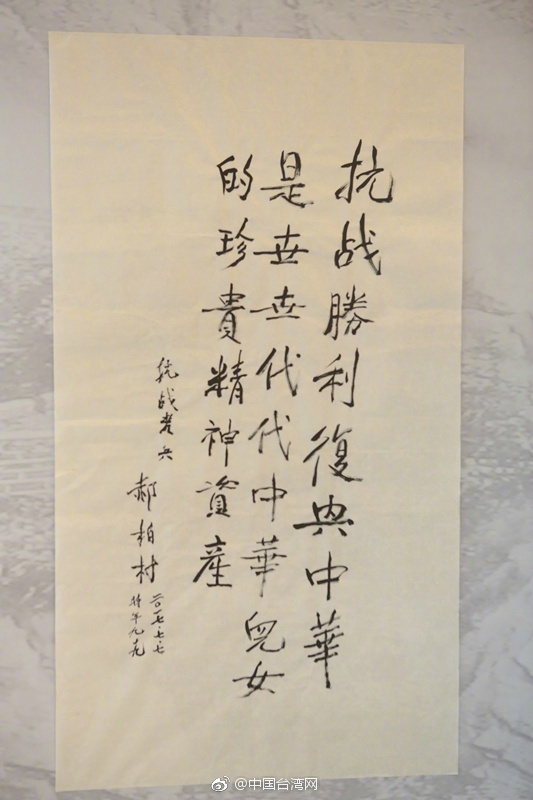 抗战勝利復興中華
是世世代代中華兒女
的珍貴精神資產
抗战老兵 郝柏村
二〇一七、七、七
时年九十九
@中国台湾网